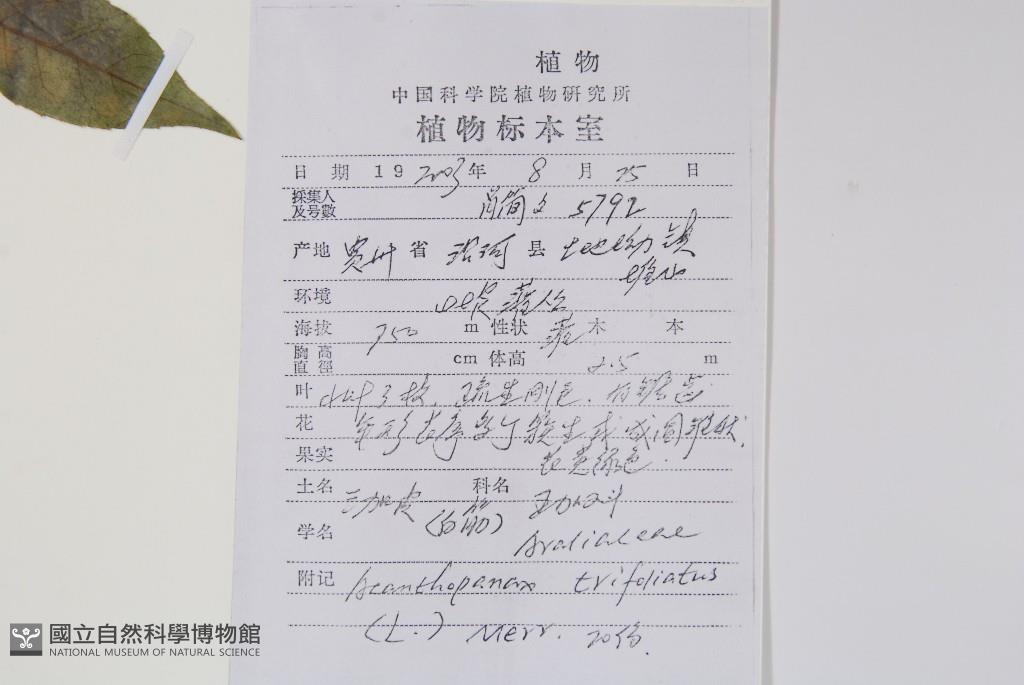 植物
中国科学院植物研究所
植物标本室
日期 19 2003年 8月 25日
採集人及号數 简 5792
产地 贵州省 沿河县
环境 山 灌丛
海拔 750 m 性状 灌木 本
胸高直徑 cm 体高 2.5 m
叶 小叶3枚, 疏生刚毛, 有锯齿
花 伞形花序 顶生 或 圆锥状,
果实 花黄绿色.
土名 三加皮 科名 五加科
(白筋)
学名 Araliaceae
附记 Acanthopanax trifoliatus
(L.) Merr. 20份.
國立自然科學博物館
NATIONAL MUSEUM OF NATURAL SCIENCE